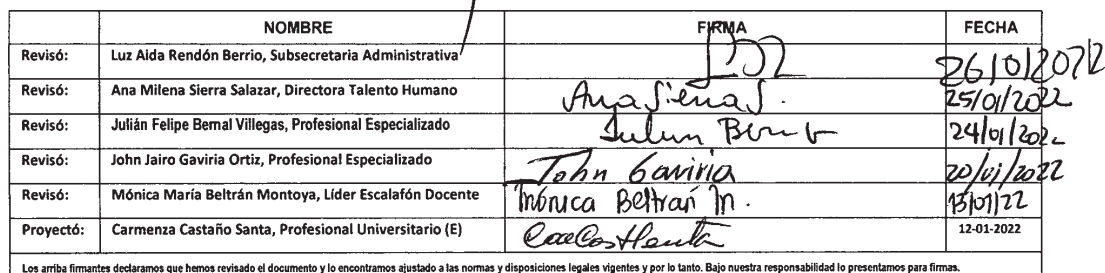 NOMBRE FIRMA FECHA
Revisó: Luz Aida Rendón Berrio, Subsecretaria Administrativa 26/01/2022
Revisó: Ana Milena Sierra Salazar, Directora Talento Humano Ana Sierra S. 25/01/2022
Revisó: Julián Felipe Bernal Villegas, Profesional Especializado Julian Bernal 24/01/2022
Revisó: John Jairo Gaviria Ortiz, Profesional Especializado John Gaviria 20/01/2022
Revisó: Mónica María Beltrán Montoya, Líder Escalafón Docente Mónica Beltrán M. 13/01/22
Proyectó: Carmenza Castaño Santa, Profesional Universitario (E) 12-01-2022
Los arriba firmantes declaramos que hemos revisado el documento y lo encontramos ajustado a las normas y disposiciones legales vigentes y por lo tanto. Bajo nuestra responsabilidad lo presentamos para firmas.